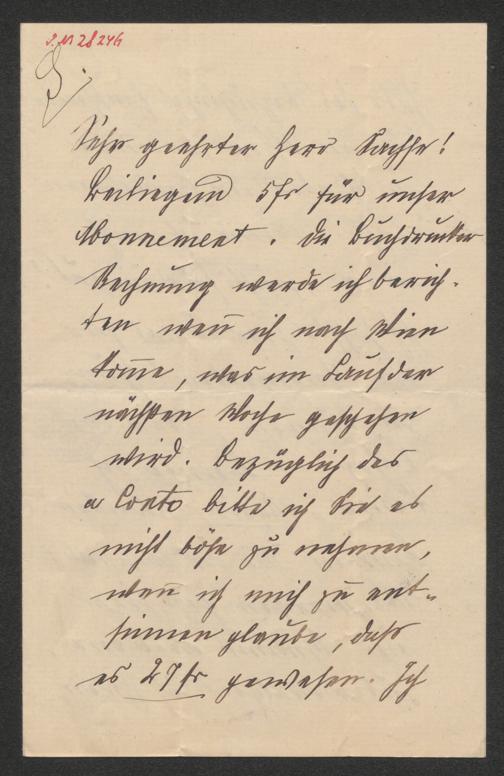 J. N 28246
Sehr geehrter Herr Sachse!
Beiliegend 5 fr für unser
Abonnement. Die Buchdrucker
Rechnung werde ich berich-
ten wen̄ ich nach Wien
kom̄e, was im Lauf der
nächsten Woche geschehen
wird. Bezüglich des
a Conto bitte ich Sie es
nicht böse zu nehmen,
wen̄ ich mich zu ent-
sinnen glaube, daß
es 27 fr gewesen. Ich